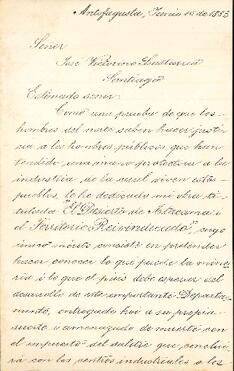 Antofagasta, Junio 15 de 1883
Señor
José Victorino Lastarria
Santiago
Estimado señor:
Como una prueba de que los
hombres del norte saben hacer justi-
cia a los hombres públicos que han
tendido una mano protectora a la
industria de la cual viven estos
pueblos, le he dedicado mi obra ti-
tulada "El Desierto de Atacama i
el Territorio Reivindicado", cuyo
único mérito consiste en pretender
hacer conocer lo que puede la mine-
ría i lo que el país debe esperar del
desarrollo de este importante Departa-
mento, entregado hoi a su propia
suerte i amenazado de muerte con
el impuesto del salitre que conclui-
rá con los centros industriales a los